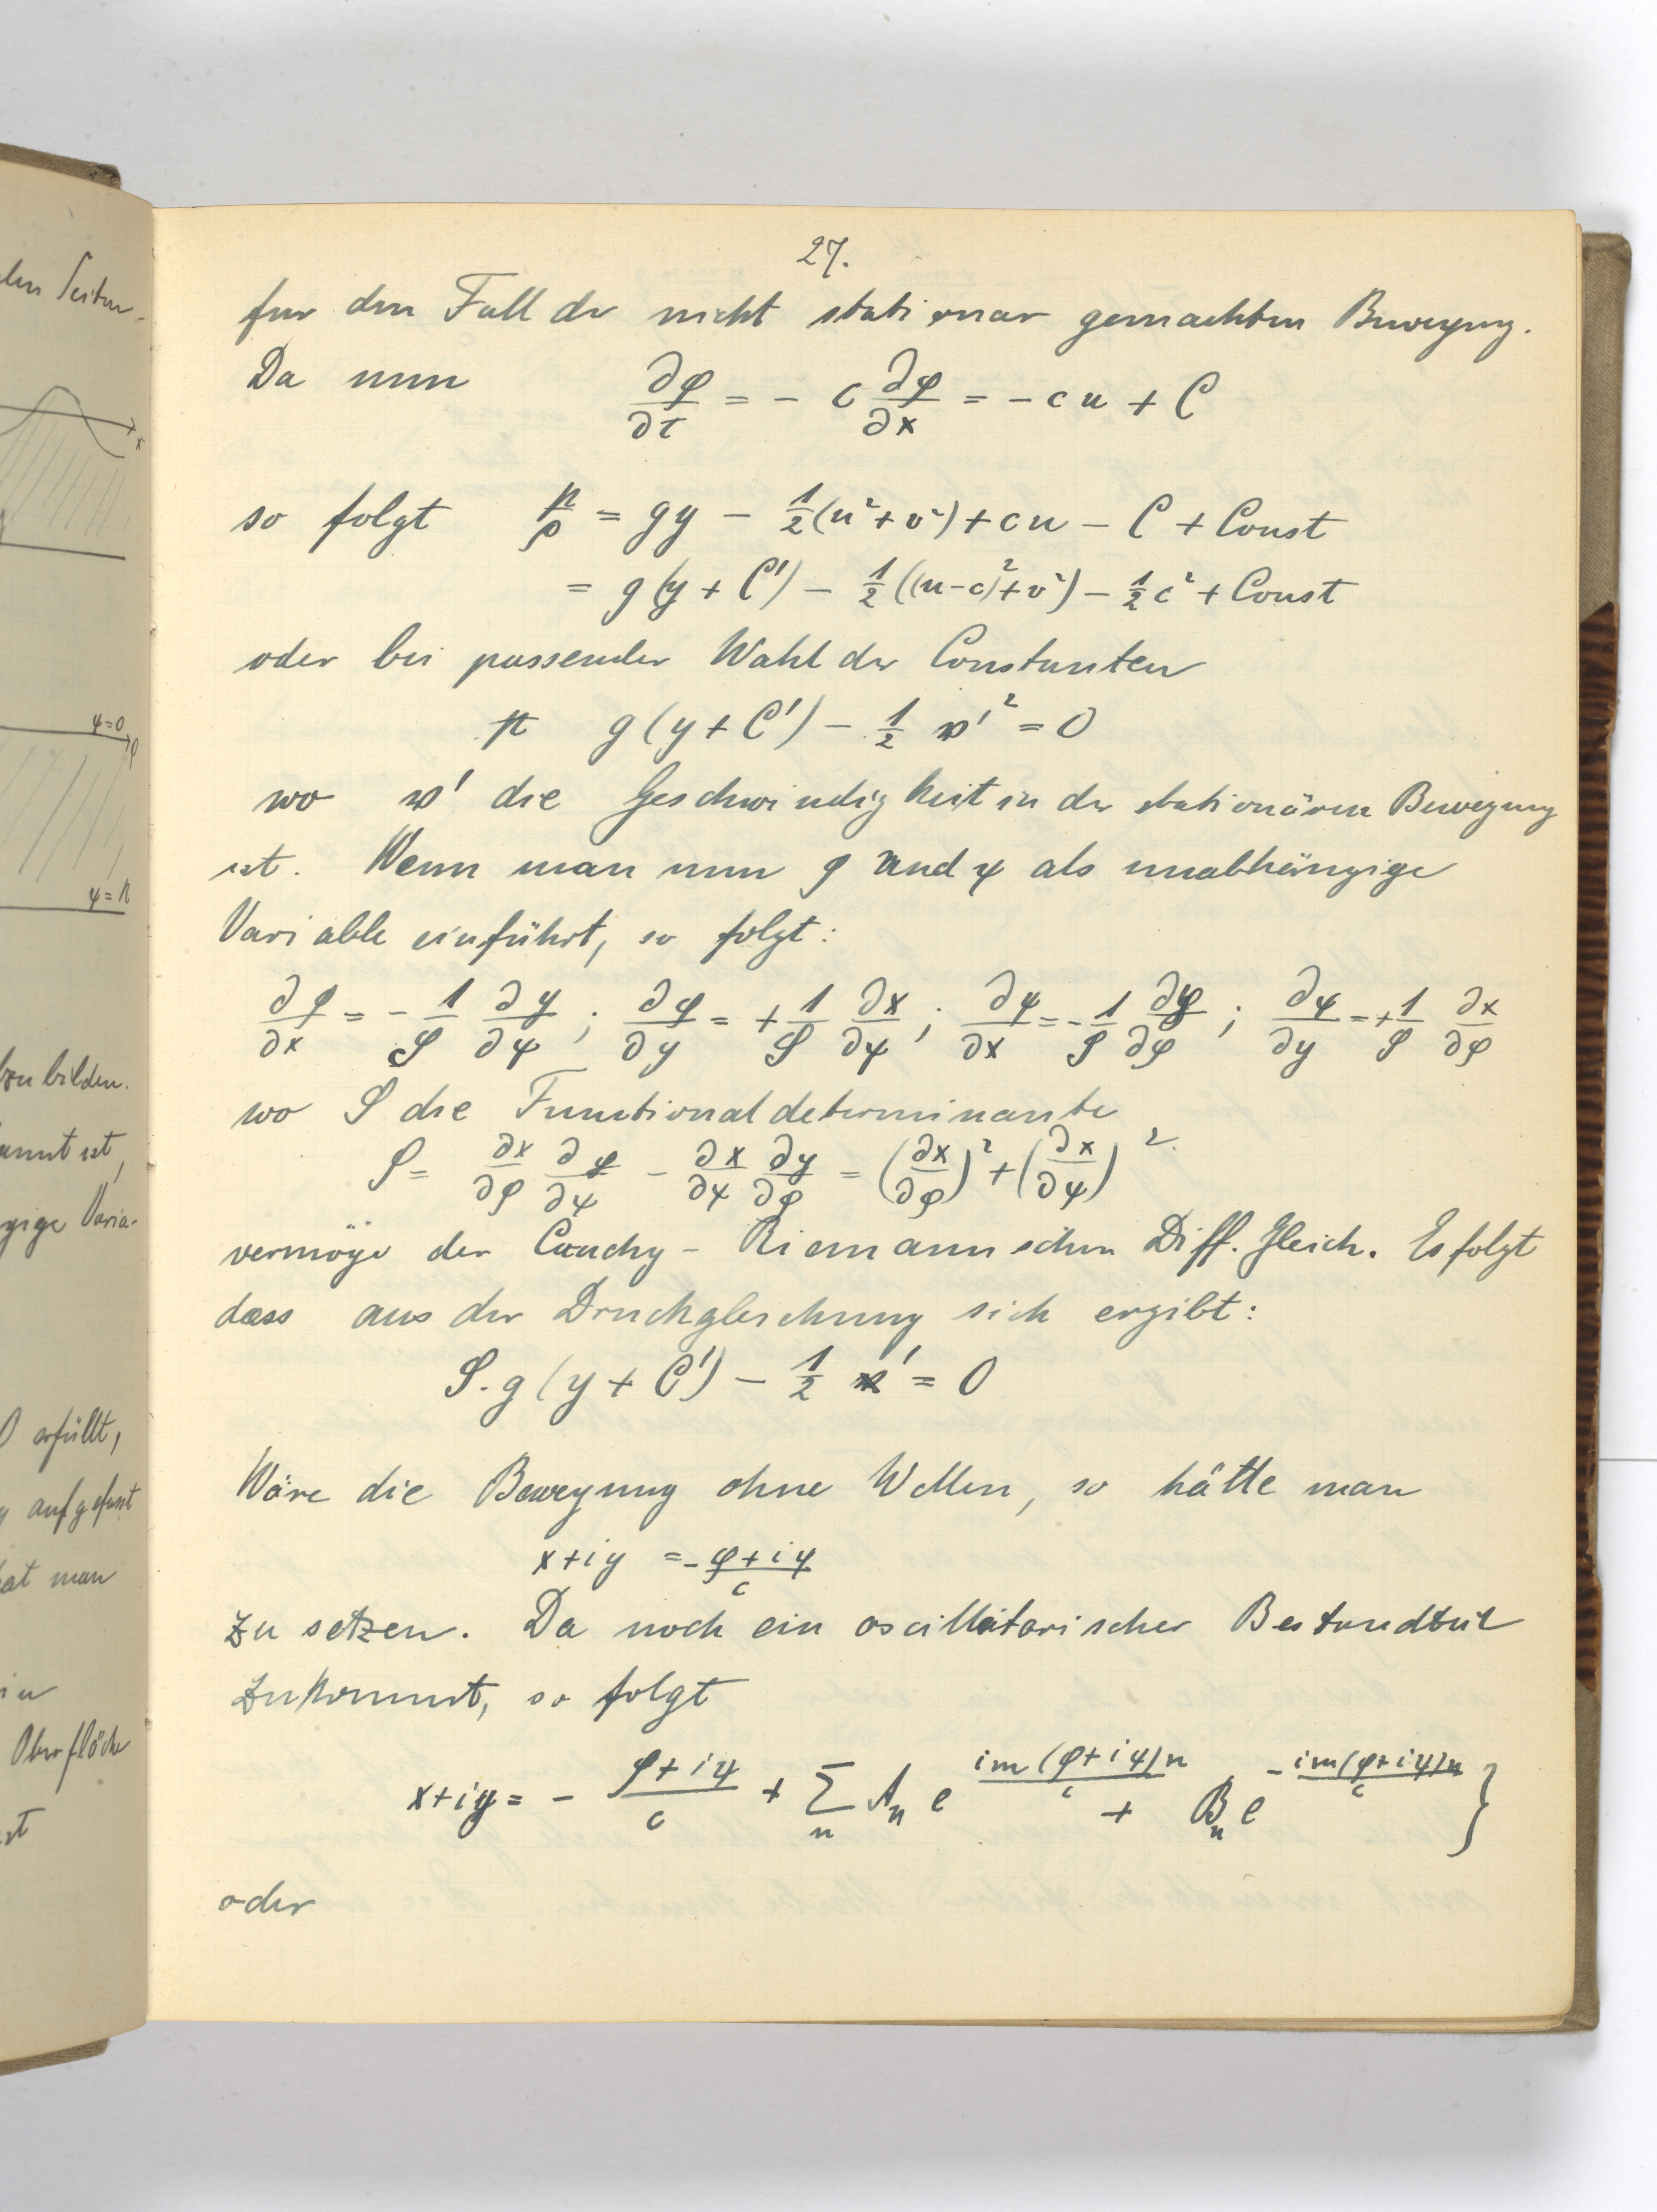 len Seiten-
x
ψ=0
φ
ψ=k
zu bilden.
annt ist,
gige Varia-
0 erfüllt,
aufgefasst
hat man
in
Oberfläche
st
27.
fur den Fall der nicht stationar gemachten Bewegung.
Da nun ∂φ/∂t = - c ∂φ/∂x = - cu + C
so folgt p/ρ = gy - 1/2(u²+v²) + cu - C + Const
= g(y + C') - 1/2((u-c)²+v²) - 1/2 c² + Const
oder bei passender Wahl der Constanten
g(y+C') - 1/2 w'² = 0
wo w' die Geschwindigkeit in der stationären Bewegung
ist. Wenn man nun φ und ψ als unabhängige
Variable einführt, so folgt:
∂φ/∂x = - 1/S ∂y/∂ψ ; ∂φ/∂y = + 1/S ∂x/∂ψ ; ∂ψ/∂x = - 1/S ∂y/∂φ ; ∂ψ/∂y = + 1/S ∂x/∂φ
wo S die Functionaldeterminante
S = ∂x/∂φ ∂y/∂ψ - ∂x/∂ψ ∂y/∂φ = (∂x/∂φ)² + (∂x/∂ψ)²
vermöge der Cauchy-Riemannschen Diff. Gleich. Es folgt
dass aus der Druckgleichung sich ergibt:
S. g(y + C') - 1/2 ' = 0
Wäre die Bewegung ohne Wellen, so hätte man
x+iy = - φ+iψ/c
zu setzen. Da noch ein oscillatorischer Bestandteil
zukommt, so folgt
x+iy = - φ+iψ/c + Σₙ Aₙ e^(im(φ+iψ)n/c) + Bₙ e^(-im(φ+iψ)n/c) }
oder